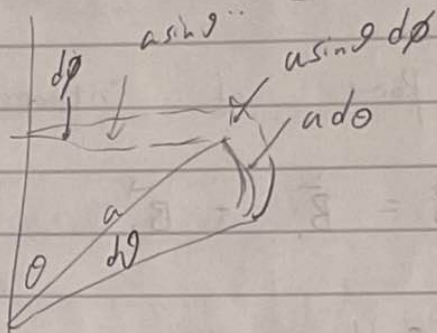 a sinϑ
dφ
a sinϑ dφ
a dθ
a
θ
dϑ
B = B